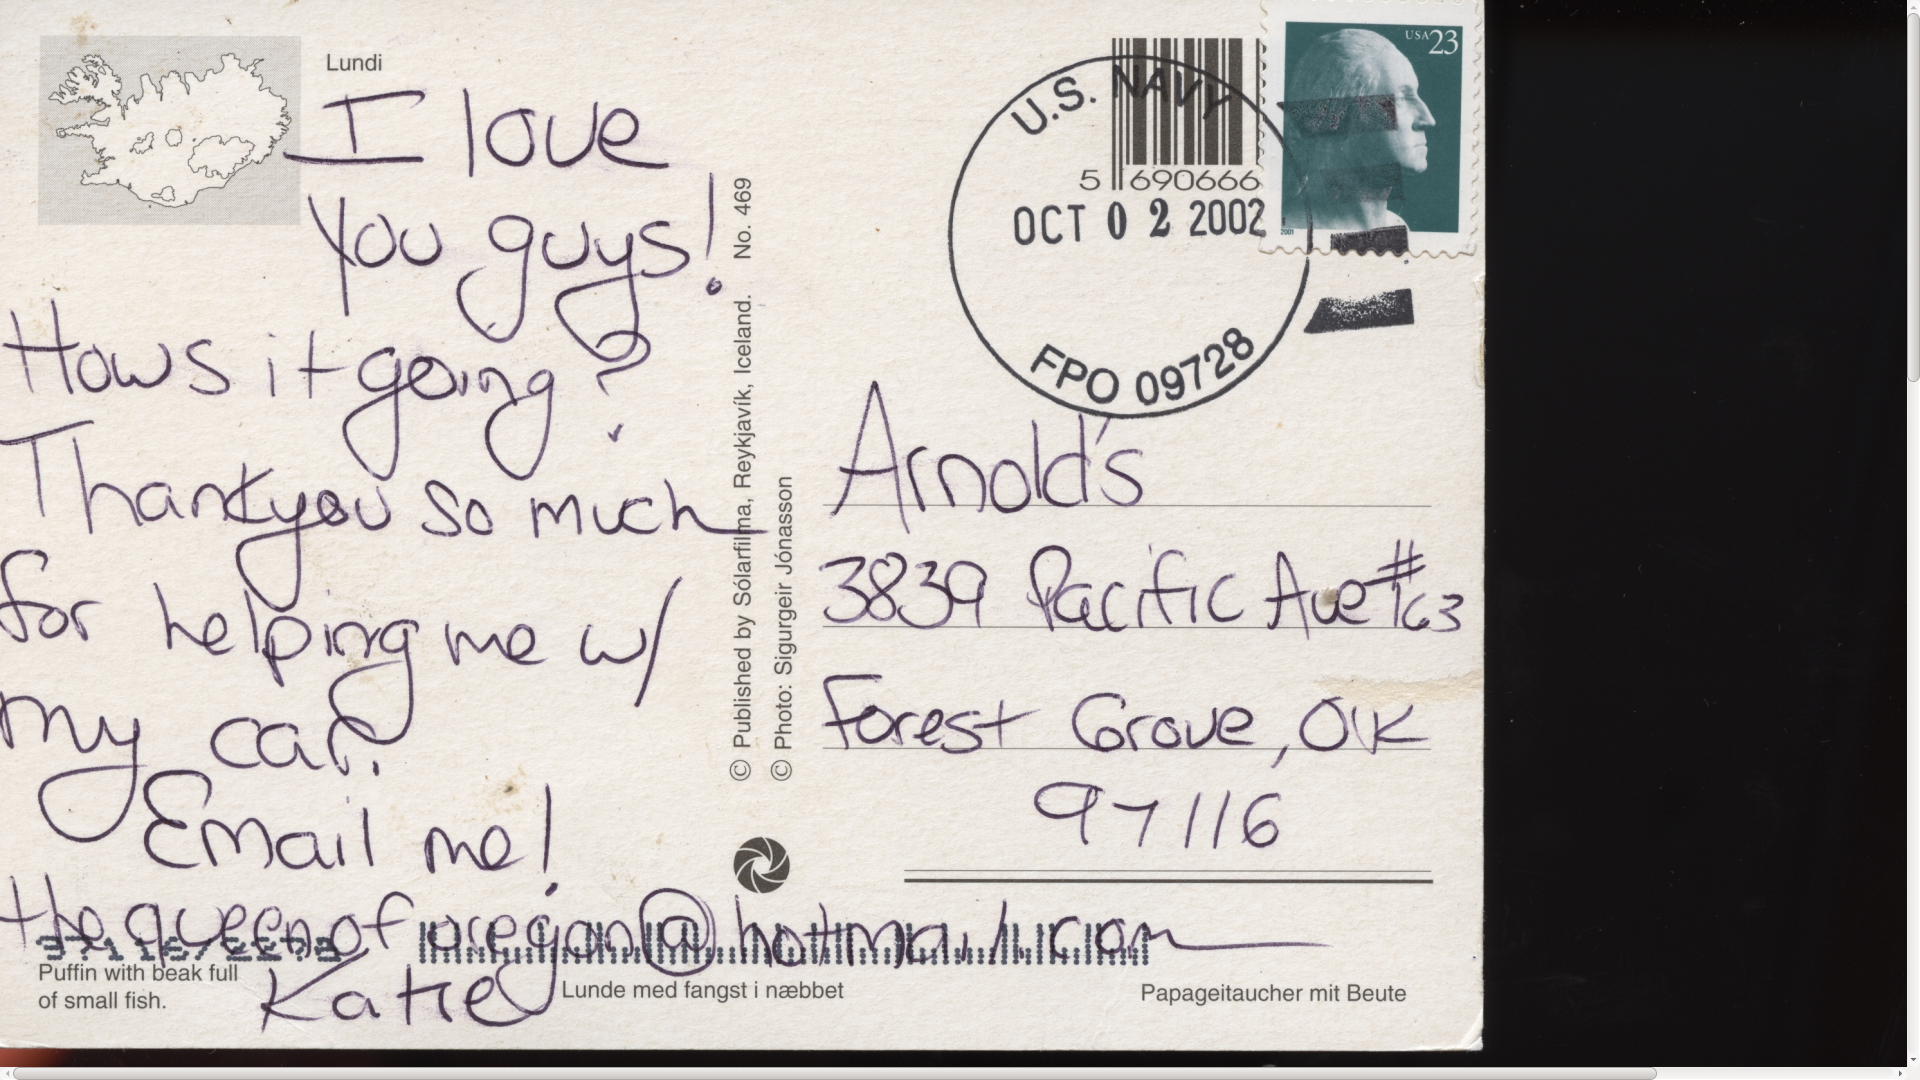 Lundi
I love
you guys!
Hows it going?
Thankyou so much
for helping me w/
my car.
Email me!
thequeenoforegon@hotmail.com
Katie
Puffin with beak full
of small fish.
Lunde med fangst i næbbet
Papageitaucher mit Beute
© Published by Sólarfilma, Reykjavík, Iceland. No. 469
© Photo: Sigurgeir Jónasson
U.S. NAVY
5 690666
OCT 02 2002
FPO 09728
USA 23
2001
Arnold's
3839 Pacific Ave #163
Forest Grove, OR
97116